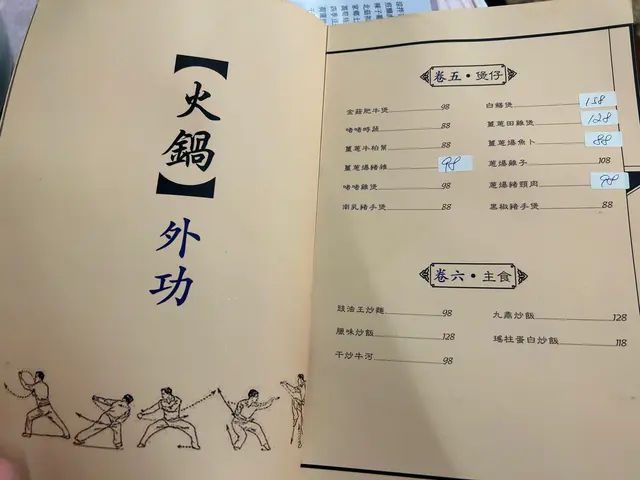 【火鍋】
外功
卷五・煲仔
金菇肥牛煲 98
啫啫時蔬 88
薑蔥牛柏葉 88
薑蔥爆豬雜 98
啫啫雞煲 98
南乳豬手煲 88
白鱔煲 138
薑蔥田雞煲 128
薑蔥爆魚卜 88
蔥爆雞子 108
蔥爆豬頸肉 98
黑椒豬手煲 88
卷六・主食
豉油王炒麵 98
臘味炒飯 128
干炒牛河 98
九鼎炒飯 128
瑤柱蛋白炒飯 118